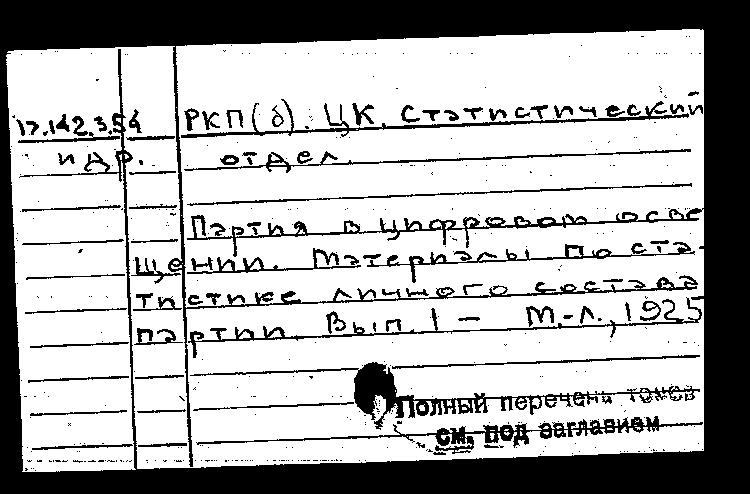 17.142.3.54 РКП(б). ЦК. Статистический
и др. отдел.
Партия в цифровом осве
щении. Материалы по ста-
тистике личного состава
партии. Вып. 1 – М.-Л., 1925
Полный перечень томов
см. под заглавием